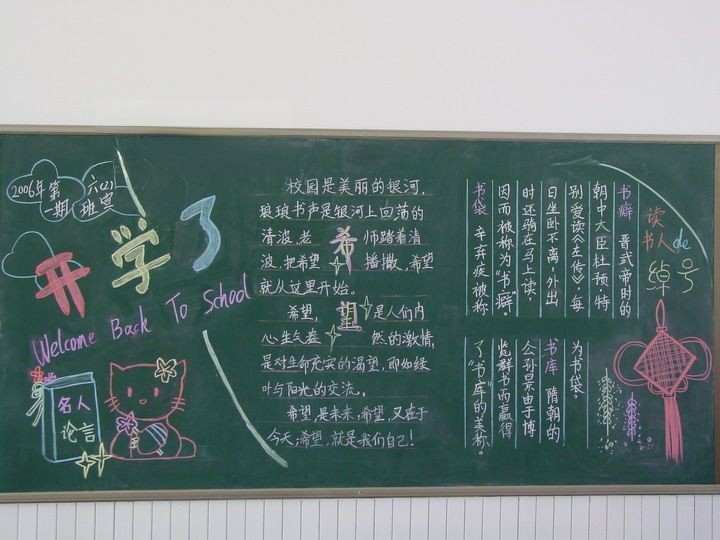 2006年第
一期
六(2)
班宣
开学了
Welcome Back To School
名人
论言
校园是美丽的银河,
琅琅书声是银河上回荡的
清波,老师踏着清
波,把希望播撒,希望
就从这里开始。
希望,是人们内
心生气盎然的激情,
是对生命充实的渴望,即如绿
叶与阳光的交流。
希望,是未来,希望,又在于
今天;希望,就是我们自己!
希
望
读书人de
绰号
书癖 晋式帝时的
朝中大臣杜预,特
别爱读《左传》,每
日坐卧不离,外出
时还骑在马上读,
因而被称为“书癖”。
书袋 辛弃疾被称
为书袋。
书库 隋朝的
公孙景由于博
览群书而赢得
了“书库”的美称。